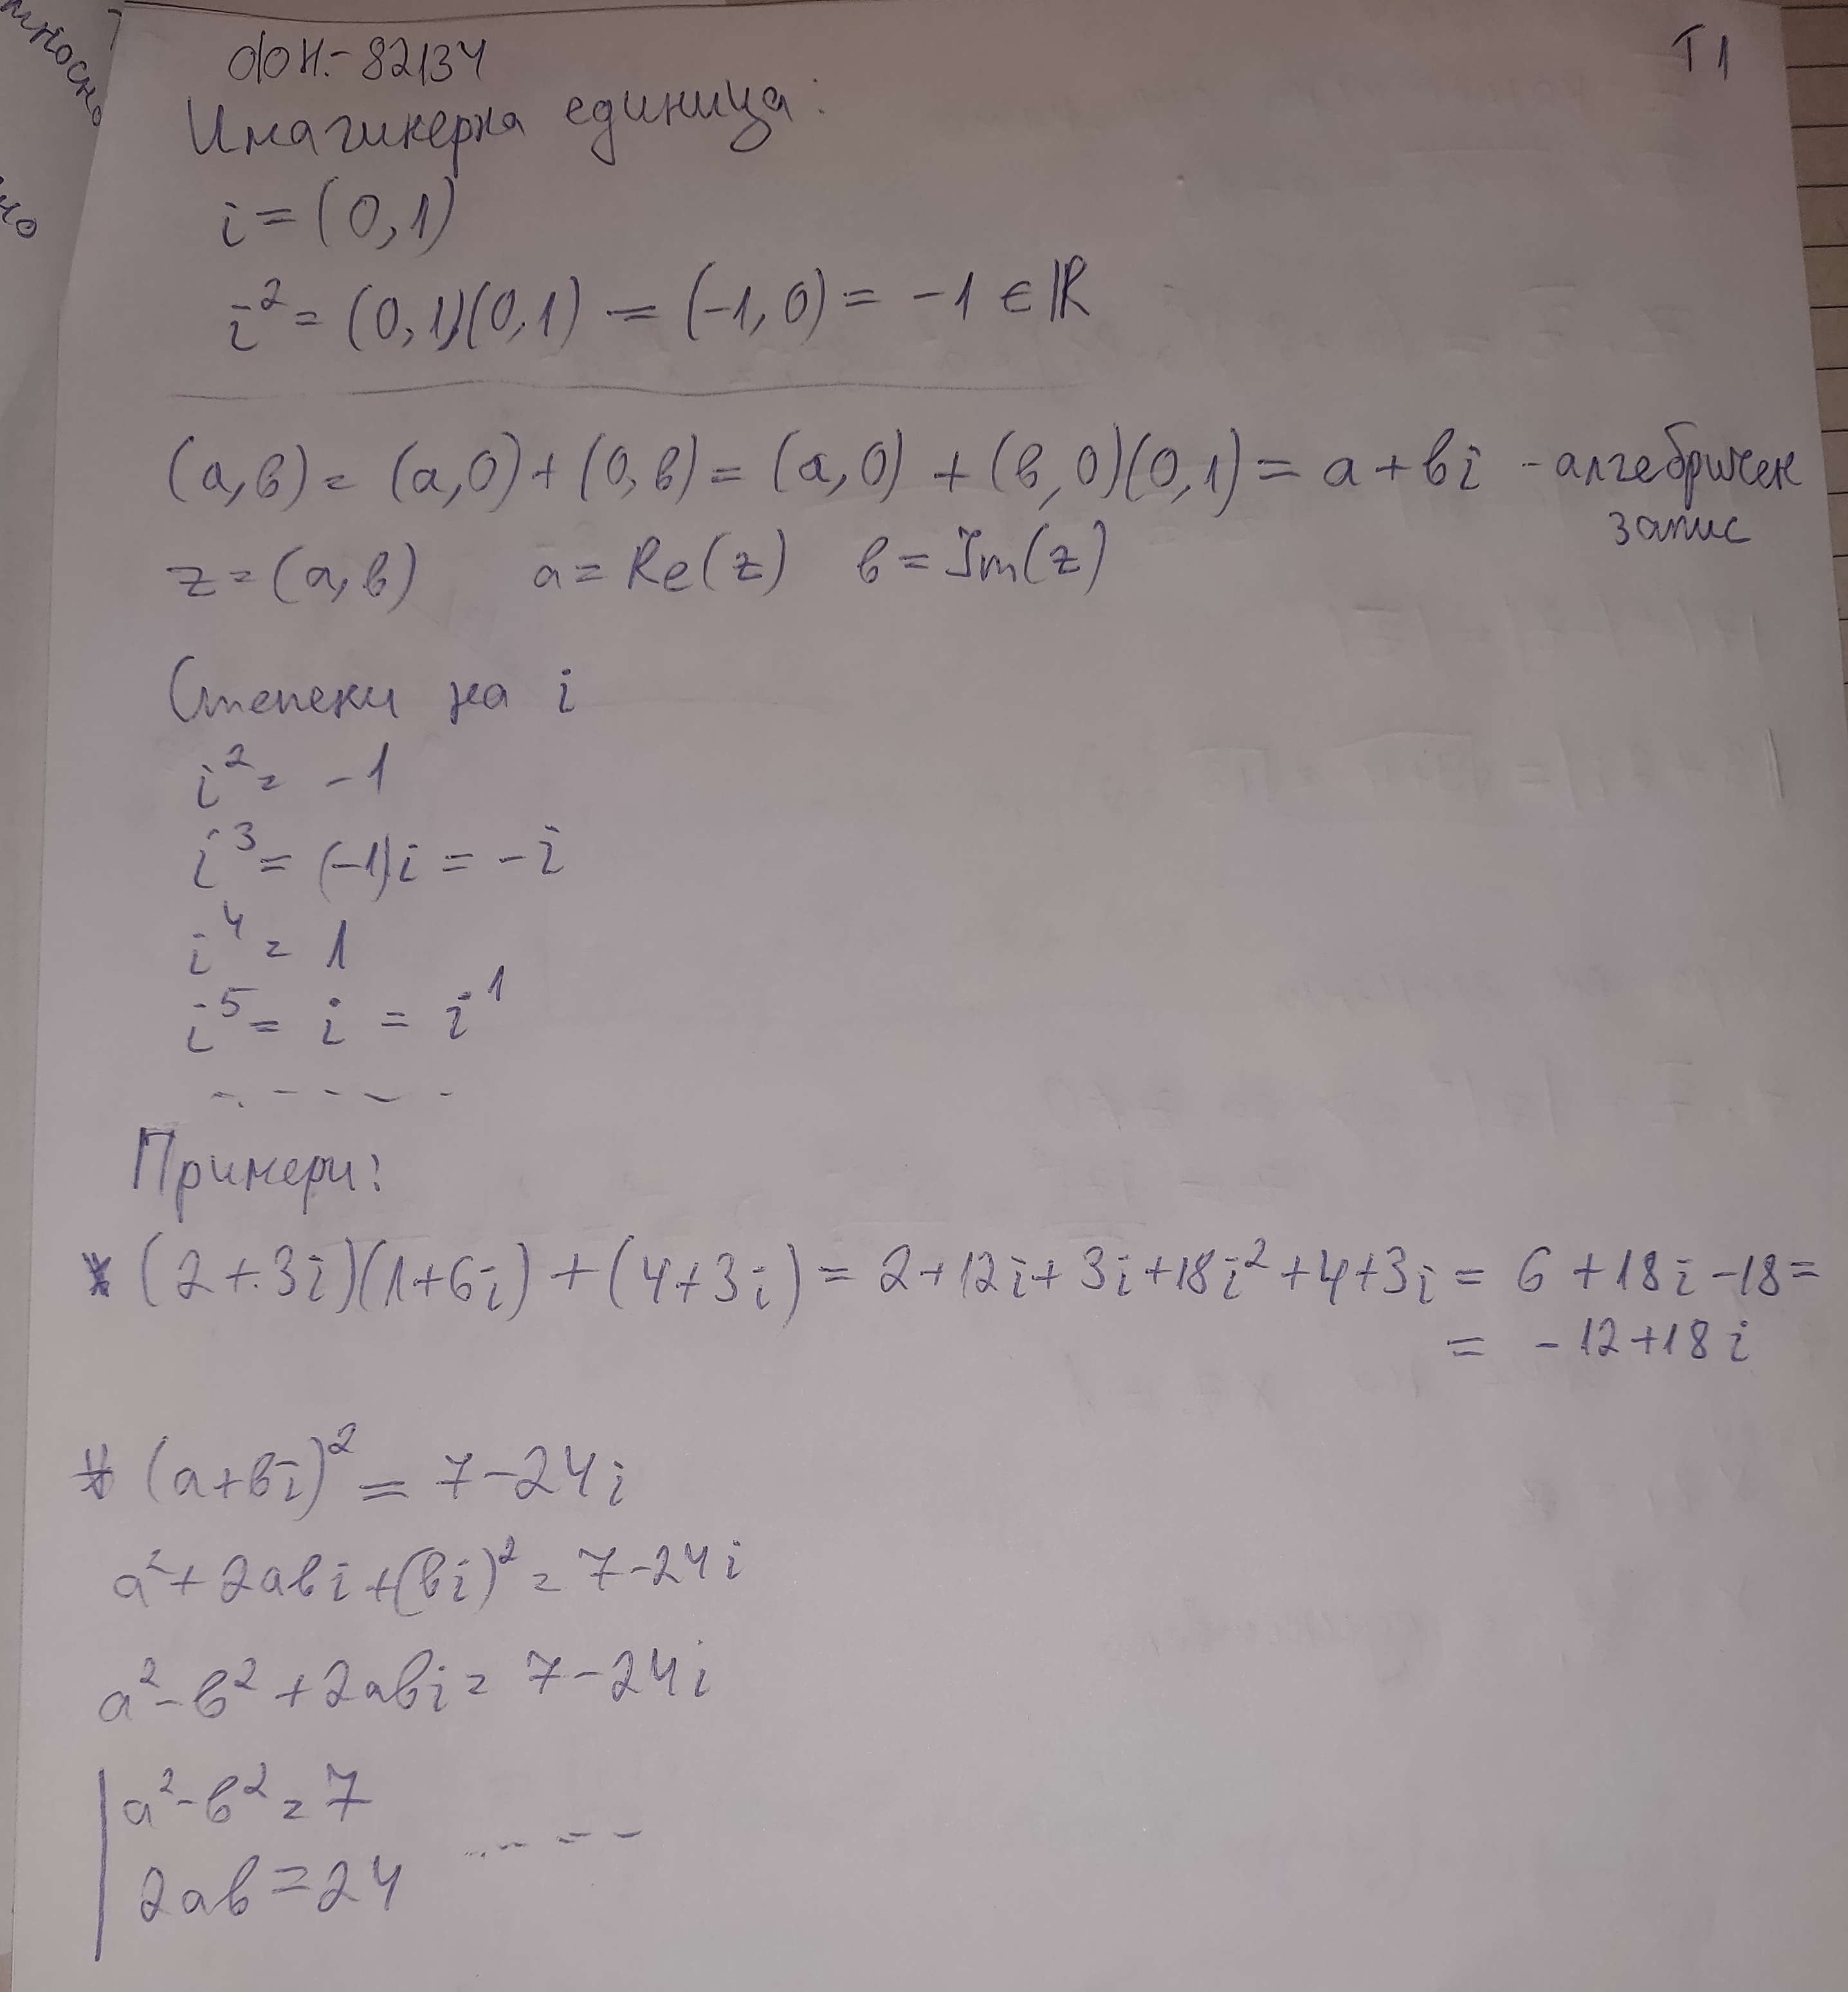 T1
ф.н.- 82134
Имагинерна единица:
i = (0,1)
i² = (0,1)(0,1) = (-1,0) = -1 ∈ ℝ
(a,b) = (a,0) + (0,b) = (a,0) + (b,0)(0,1) = a + bi - алгебричен
запис
z = (a,b) a = Re(z) b = Im(z)
Степени на i
i² = -1
i³ = (-1)i = -i
i⁴ = 1
i⁵ = i = i¹
- - - - -
Примери:
* (2+3i)(1+6i) + (4+3i) = 2+12i+3i+18i²+4+3i = 6+18i-18=
= -12+18i
* (a+bi)² = 7-24i
a²+2abi+(bi)² = 7-24i
a²-b²+2abi = 7-24i
| a²-b² = 7
| 2ab = 24 ... - - -